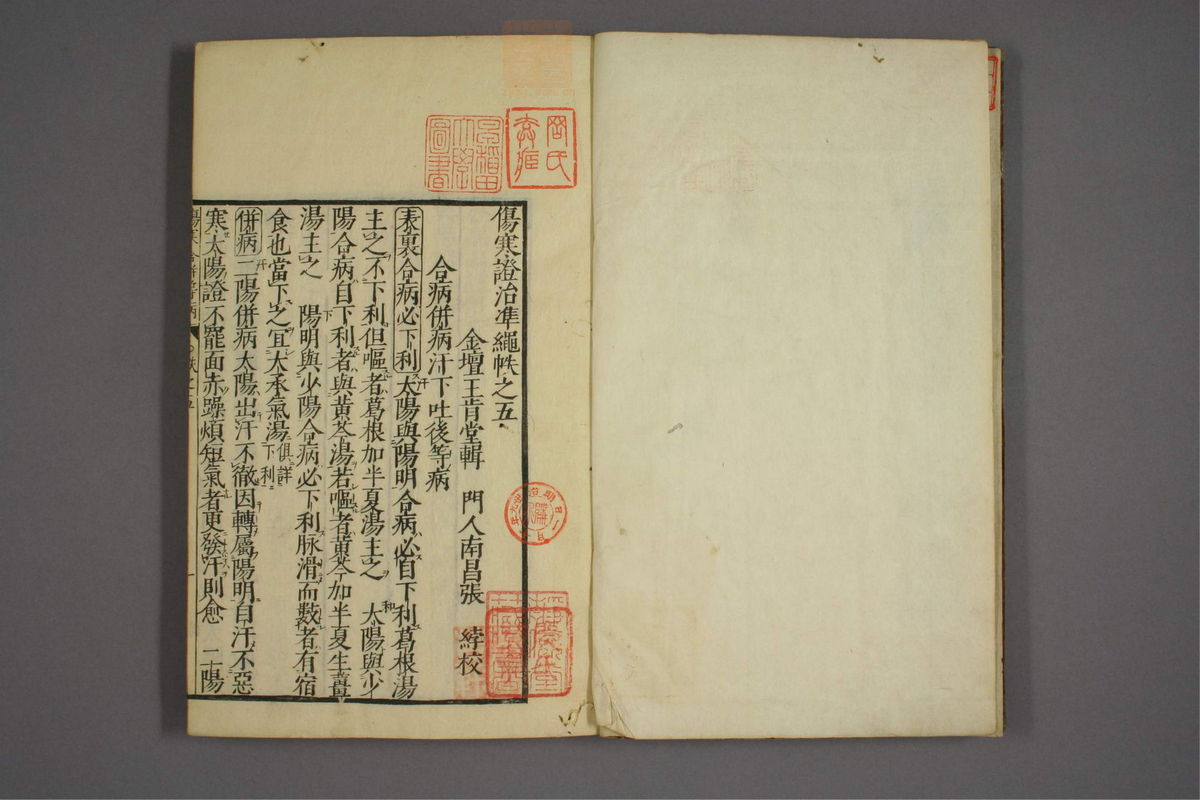 傷寒證治準繩帙之五
金壇王肯堂輯 門人南昌張 綍校
合病併病汗下吐後等病
表裏合病必下利太陽與陽明合病必自下利葛根湯
主之不下利但嘔者葛根加半夏湯主之 太陽與少
陽合病自下利者與黃芩湯若嘔者黃芩加半夏生薑
湯主之 陽明與少陽合病必下利脉滑而數者有宿
食也當下之宜大承氣湯俱詳下利
併病二陽併病太陽出汗不徹因轉屬陽明自汗不惡
寒太陽證不罷面赤躁煩短氣者更發汗則愈 二陽
早稻田大學圖書